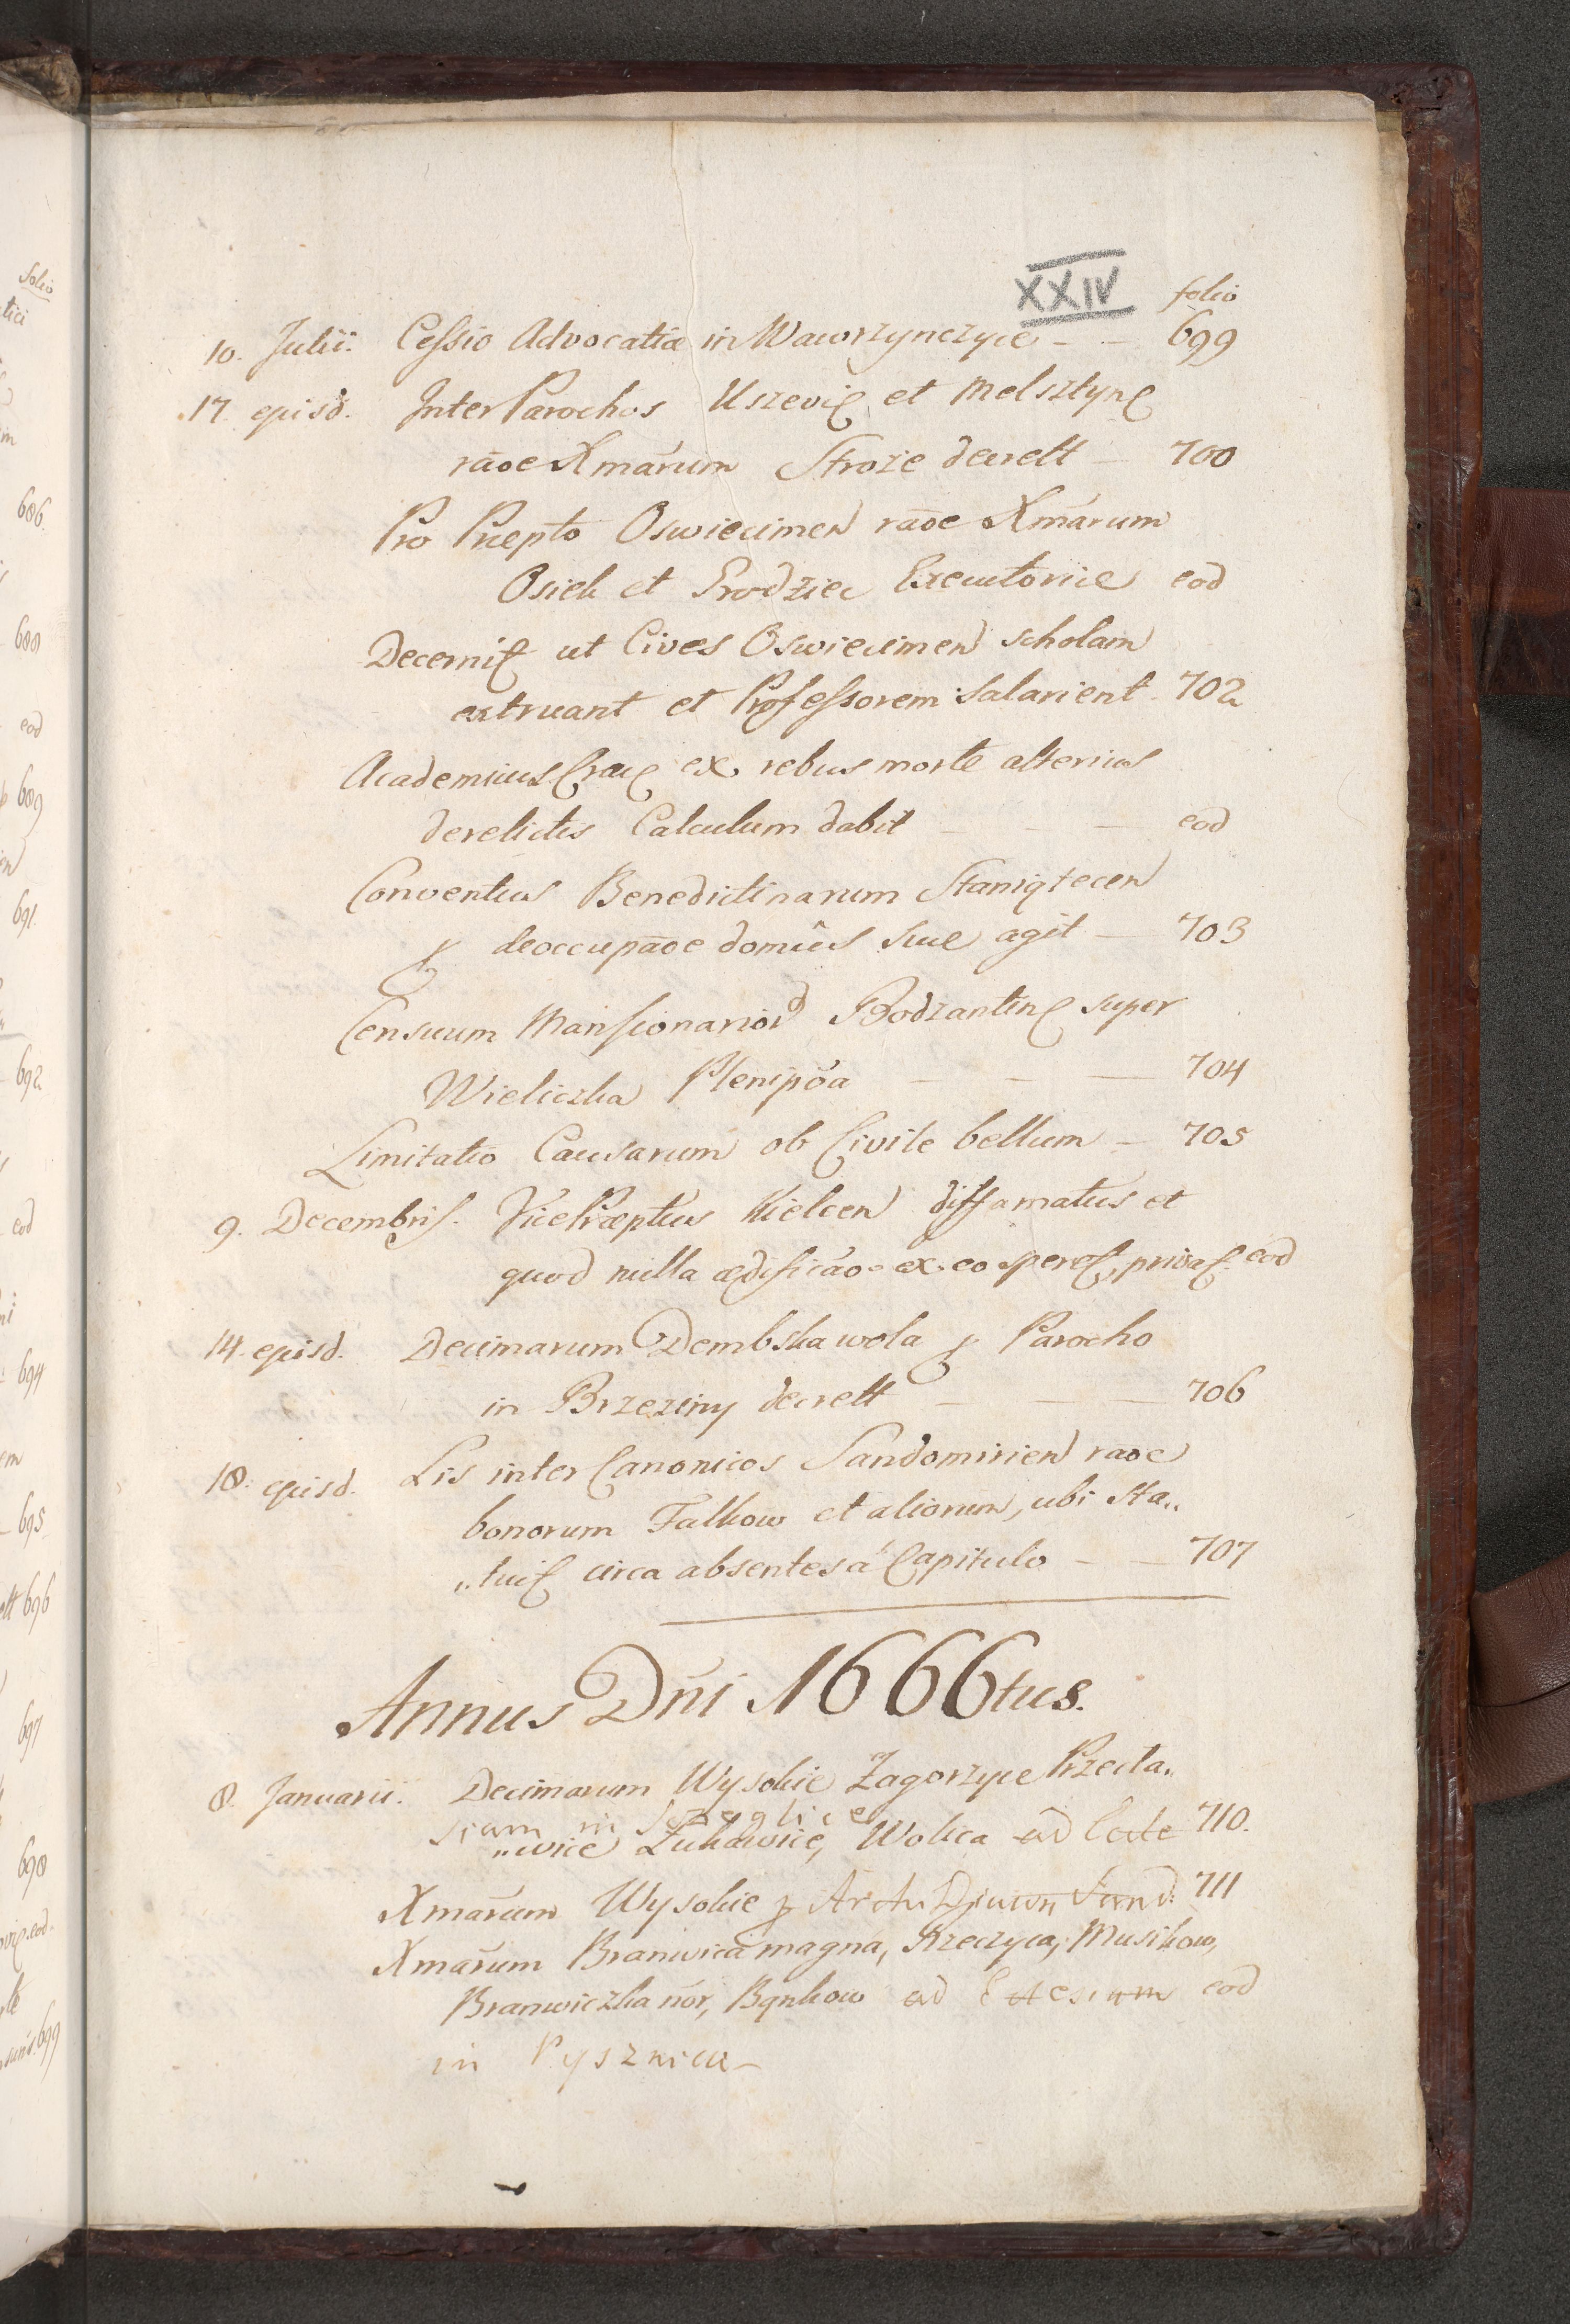 XXIV
folio
10. Julii. Cessio Advocatiæ in Wawrzynczyce 699
17. ejusd. Inter Parochos Uszevię et Melsztynę
rāoe Xmārum Stroze decrett 700
Pro Præpto Oswiecimen rāoe Xmārum
Osiek et Grodziec Executoriæ eod
Decernię ut Cives Oswiecimen scholam
extruant et Professorem salarient 702
Academicus Cracę ex rebus morte alterius
derelictis Calculum dabit eod
Conventus Benedictinarum Staniątecen
ꝑ deoccupāoe domûs suæ agit 703
Censuum Mansionarior Bodzantinę super
Wieliczka Plenipōa 704
Limitatio Causarum ob Civile bellum 705
9. Decembris. VicePræptus Kielcen diffamatus et
quod nulla ædificāo ex eo speref, privaf. eod
14. ejusd. Decimarum Dembska wola ꝑ Parocho
in Brzeziny decrett 706
18. ejusd. Lis inter Canonicos Sandomirien raoe
bonorum Falkow et aliorum, ubi sta„
„tuię circa absentes á Capitulo 707
Annus Dn̄i 1666tus.
8. Januarii. Decimarum Wysokie Zagorzyce Przecta„
siam in
„wice Lukawice, Wolica ad Eccle 710.
Xmārum Wysokie ꝑ 711
Xmārum Branwica magna, Rzeczyca, Musikow,
Branwiczka nor, Bąnkow ad Eccesiam eod
in Pysznica